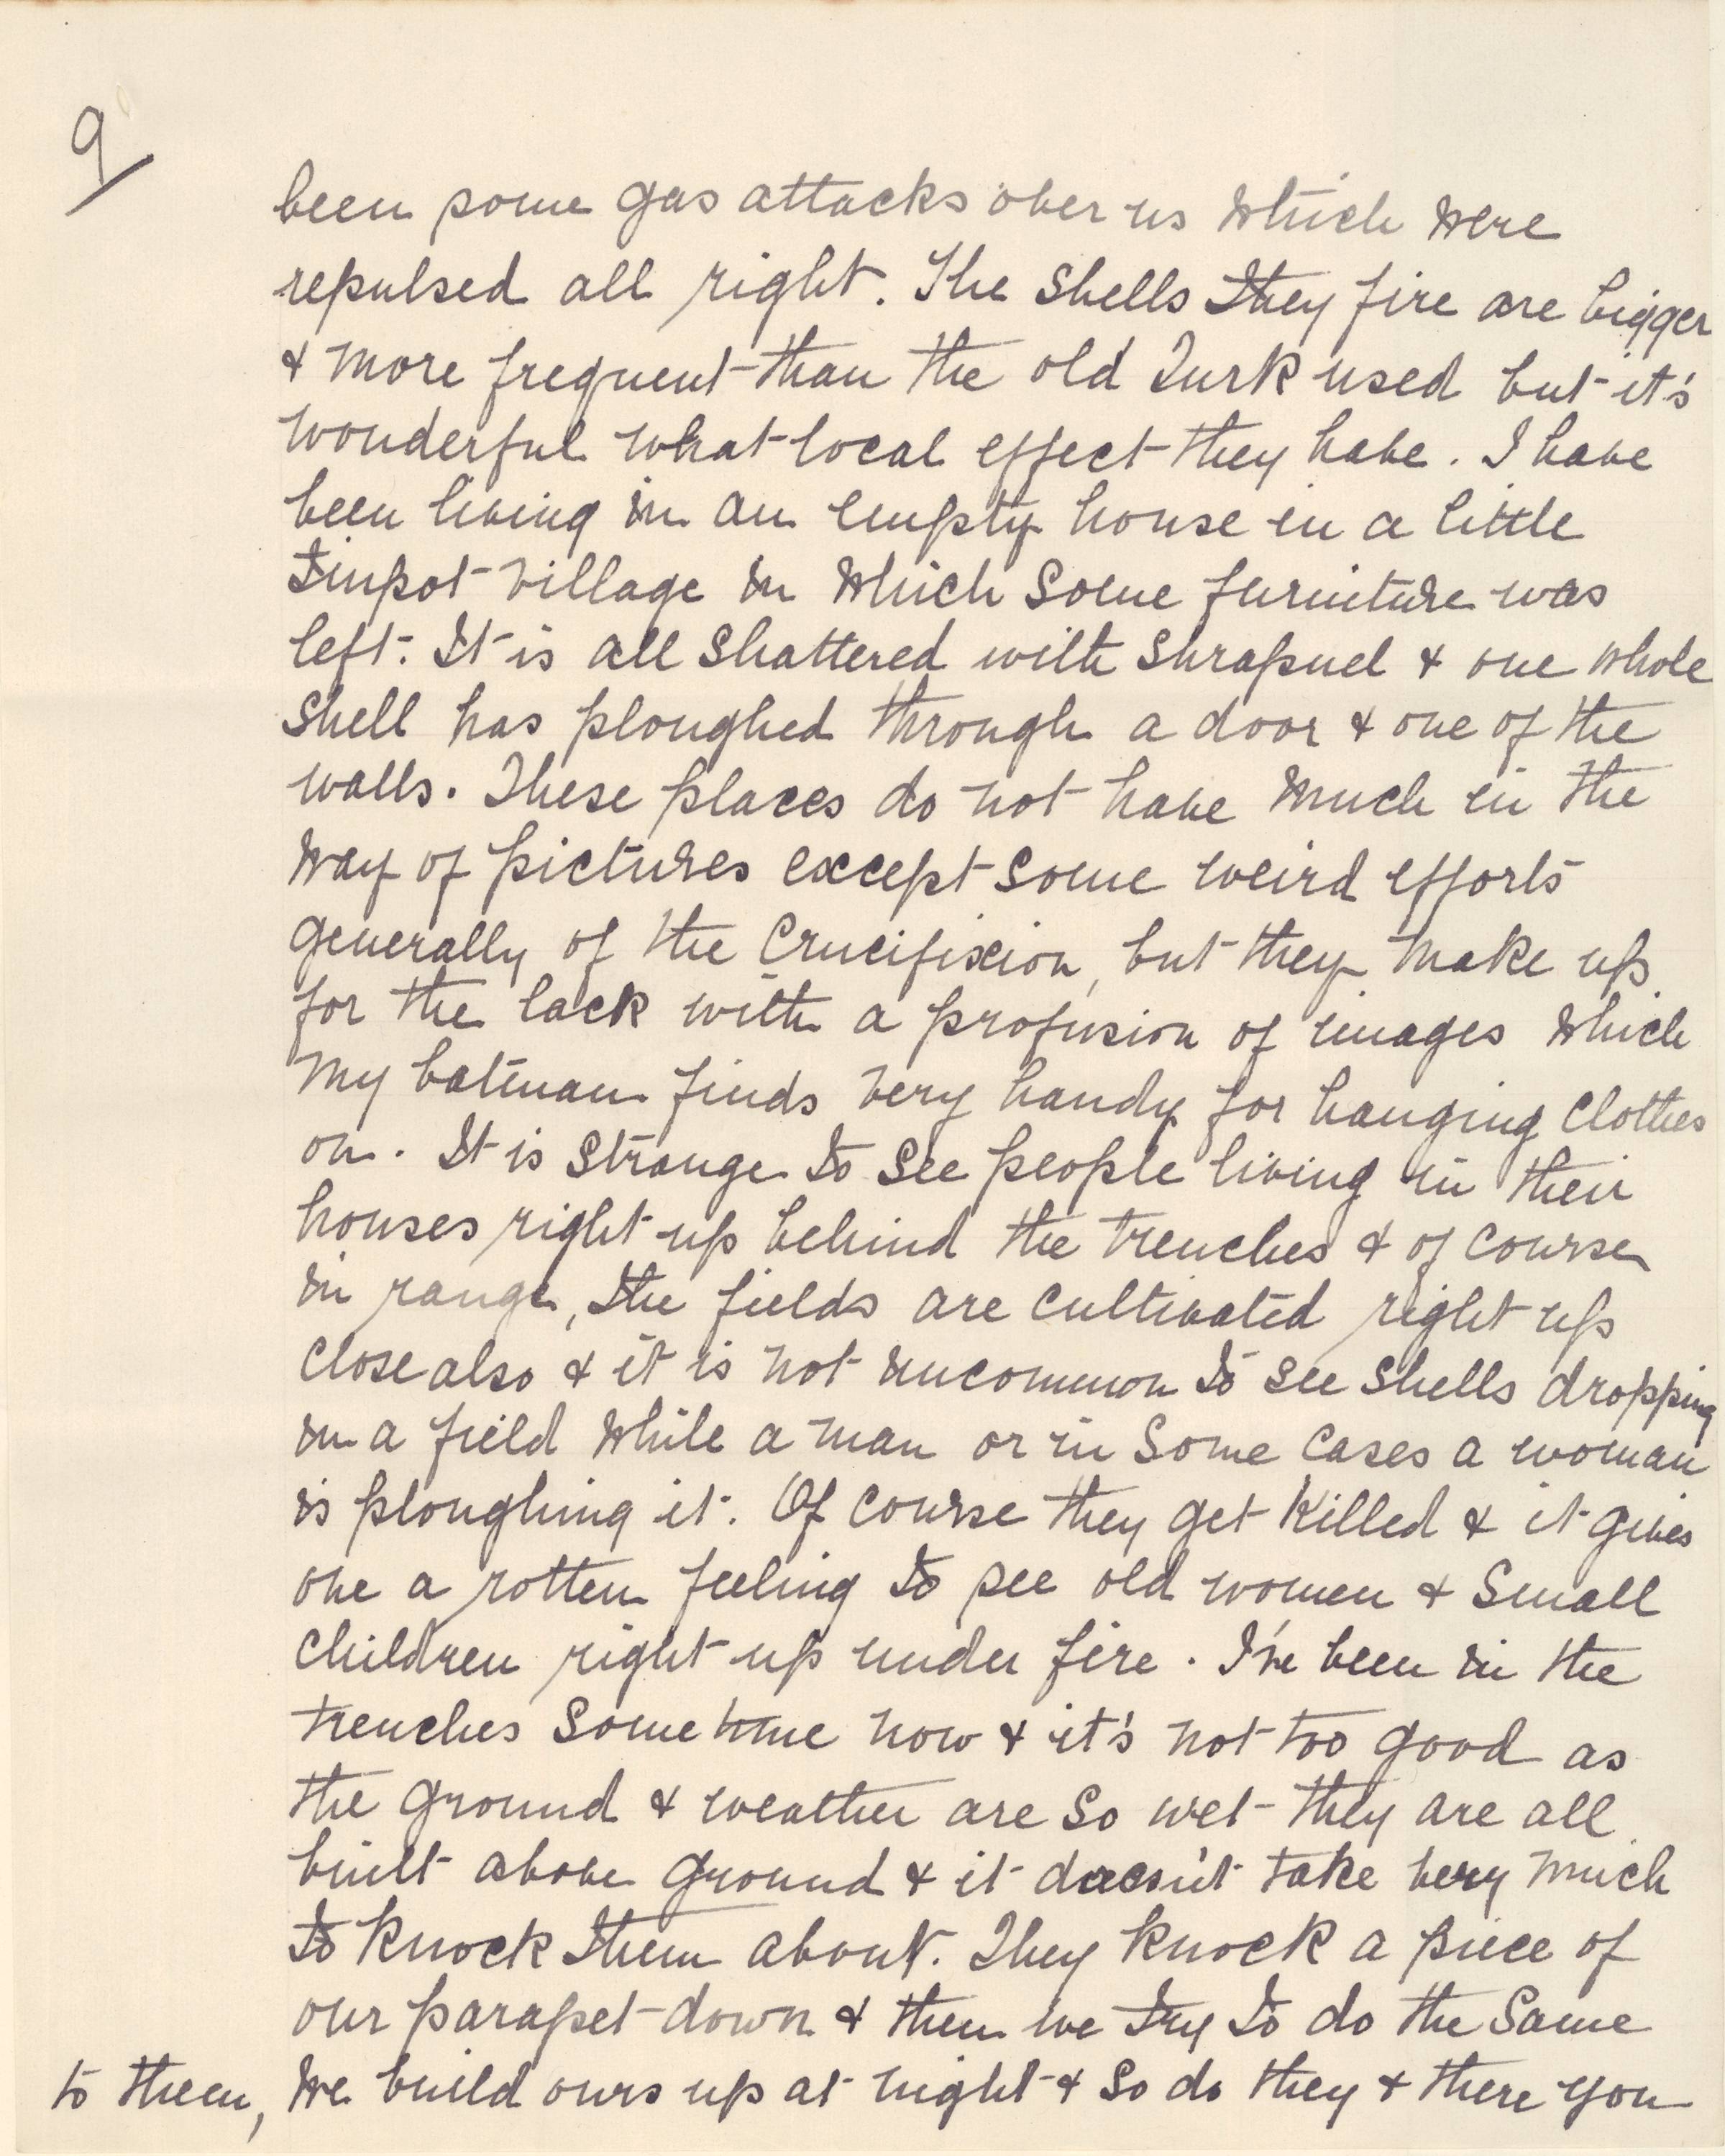 9/
been some gas attacks over us which were
repulsed all right. The shells they fire are bigger
& more frequent than the old Turk used but it's
wonderful what local effect they have. I have
been living in an empty house in a little
tinpot village in which some furniture was
left. It is all shattered with shrapnel & one whole
shell has ploughed through a door & one of the
walls. These places do not have much in the
way of pictures except some weird efforts
generally of the Crucifixion, but they make up
for the lack with a profusion of images which
my batman finds very handy for hanging clothes
on. It is strange to see people living in their
houses right up behind the trenches & of course
in range, the fields are cultivated right up
close also & it is not uncommon to see shells dropping
in a field while a man or in some cases a woman
is ploughing it. Of course they get killed & it gives
one a rotten feeling to see old women & small
children right up under fire. I've been in the
trenches some time now & it's not too good as
the ground & weather are so wet they are all
built above ground & it doesn't take very much
to knock them about. They knock a piece of
our parapet down & then we try to do the same
to them, we build ours up at night & so do they & there you